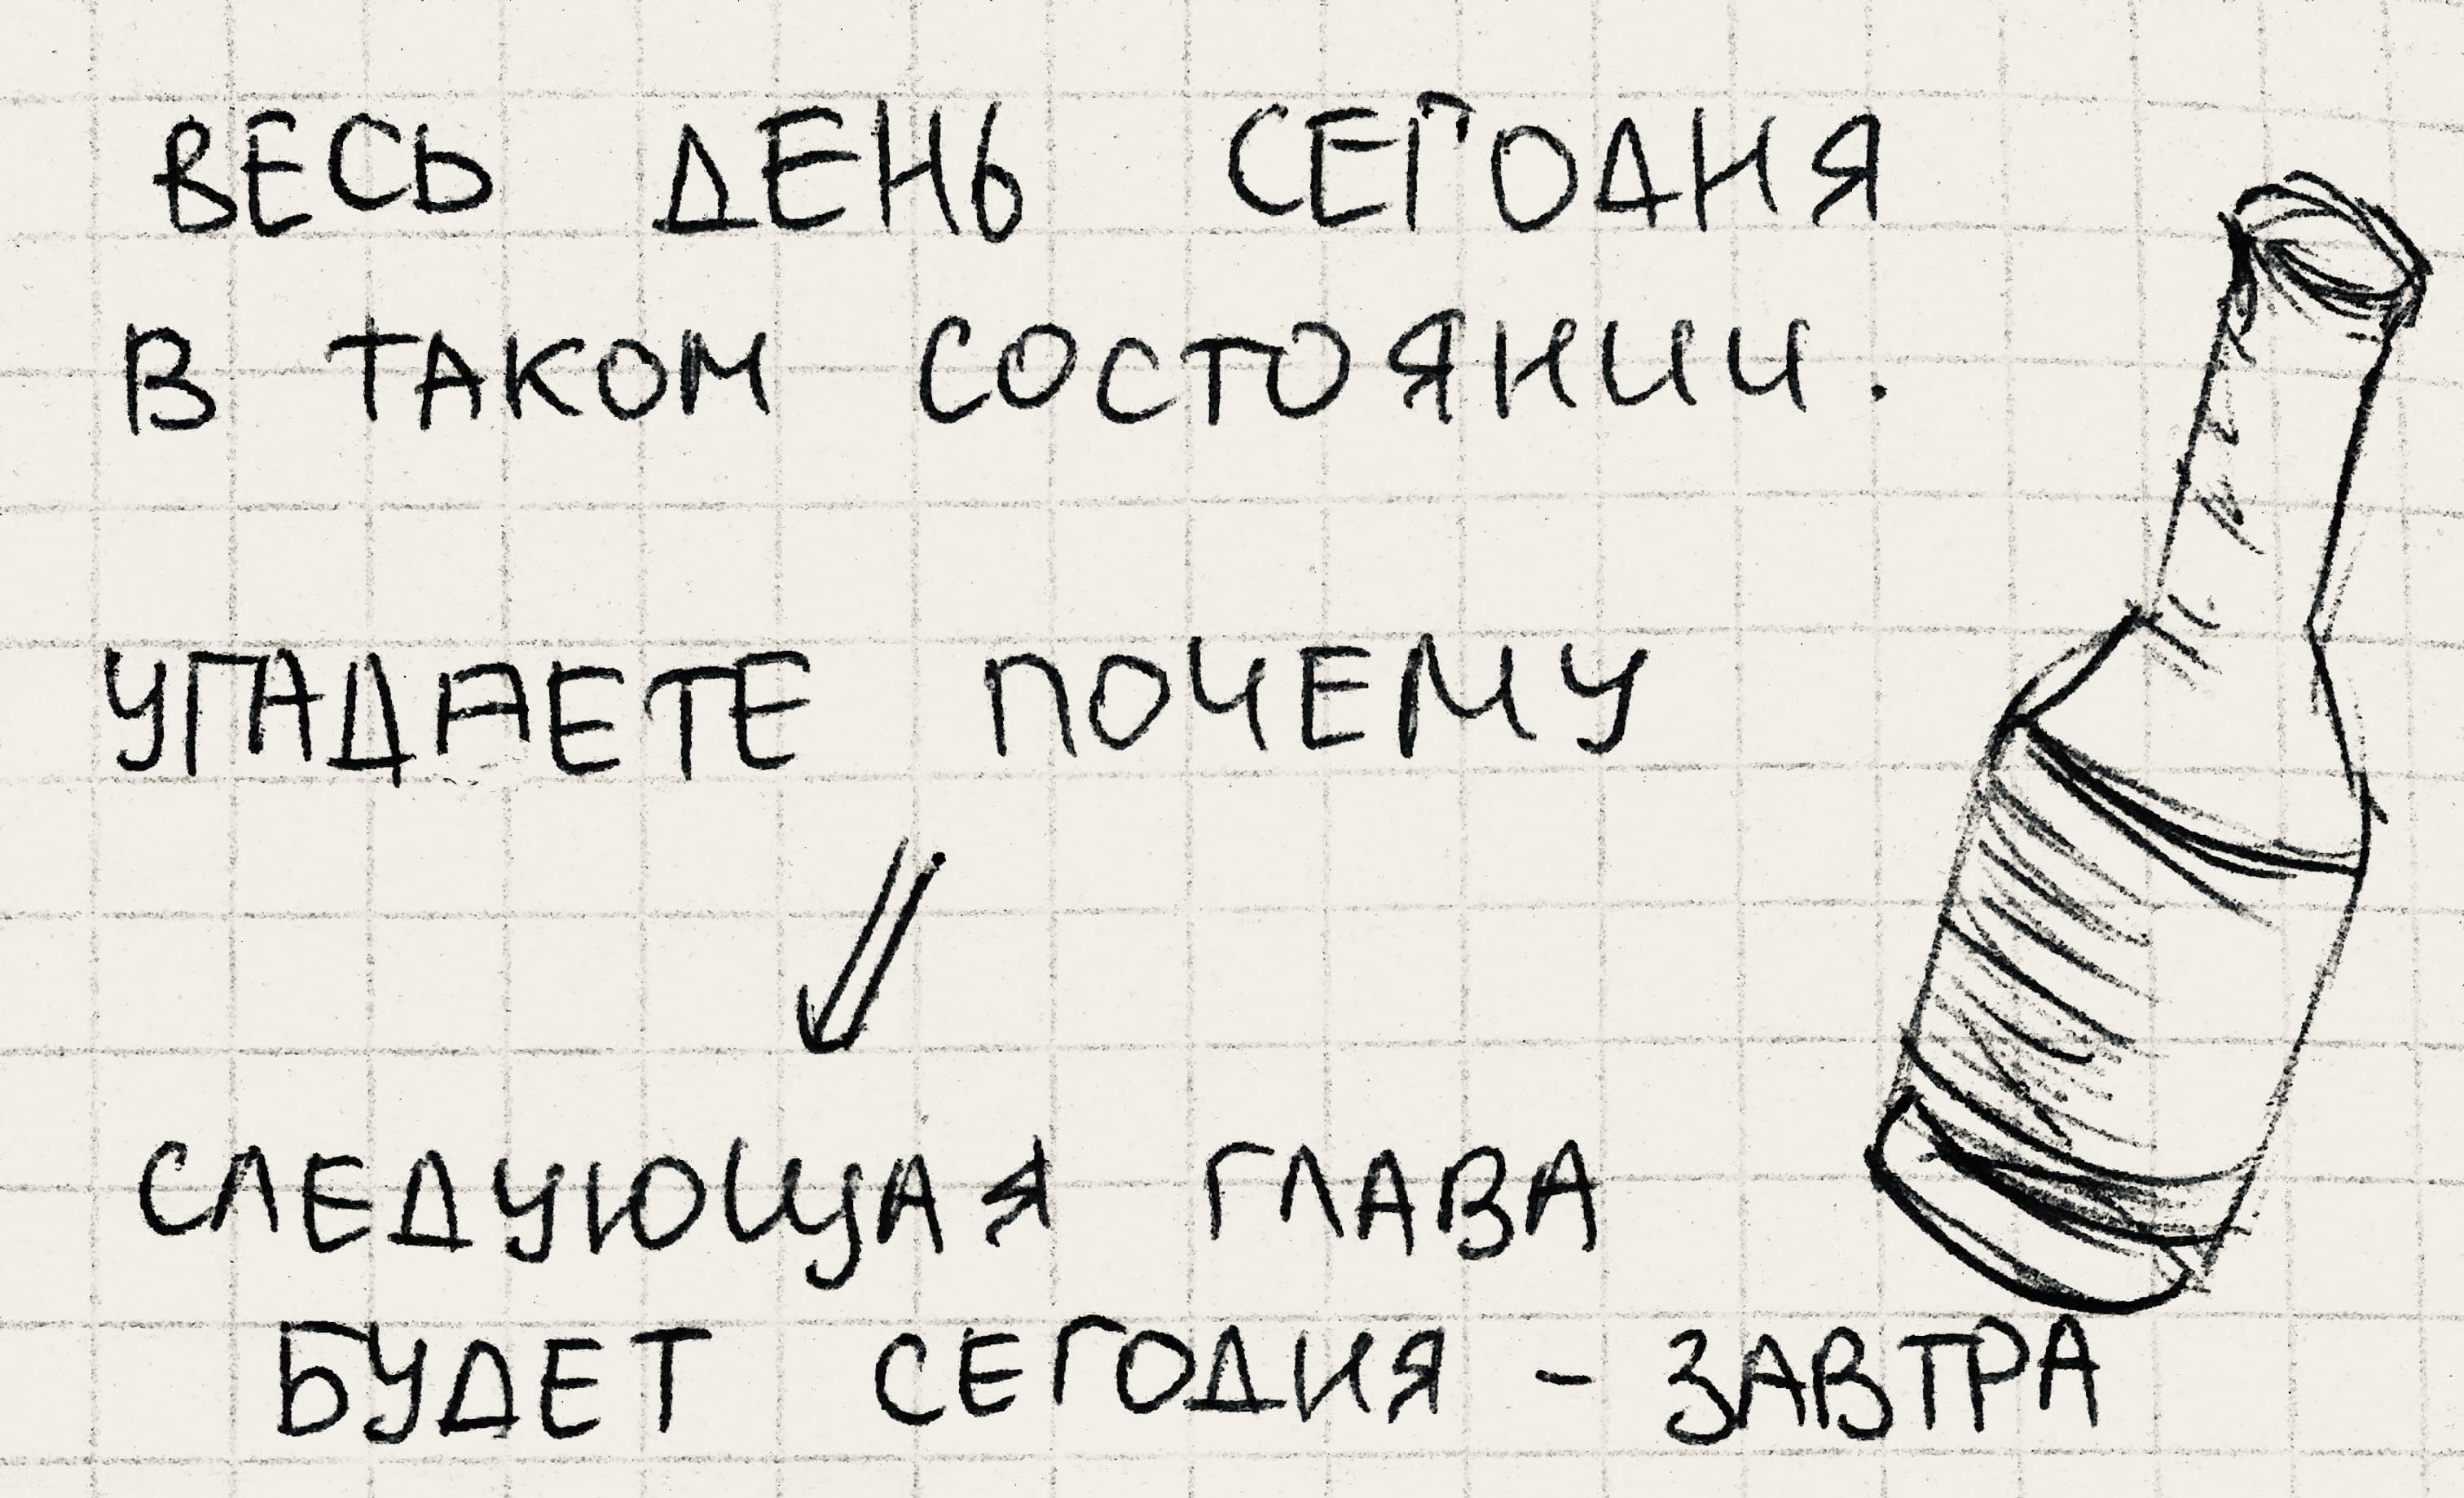 ВЕСЬ ДЕНЬ СЕГОДНЯ
В ТАКОМ СОСТОЯНИИ.
УГАДАЕТЕ ПОЧЕМУ
СЛЕДУЮЩАЯ ГЛАВА
БУДЕТ СЕГОДНЯ - ЗАВТРА